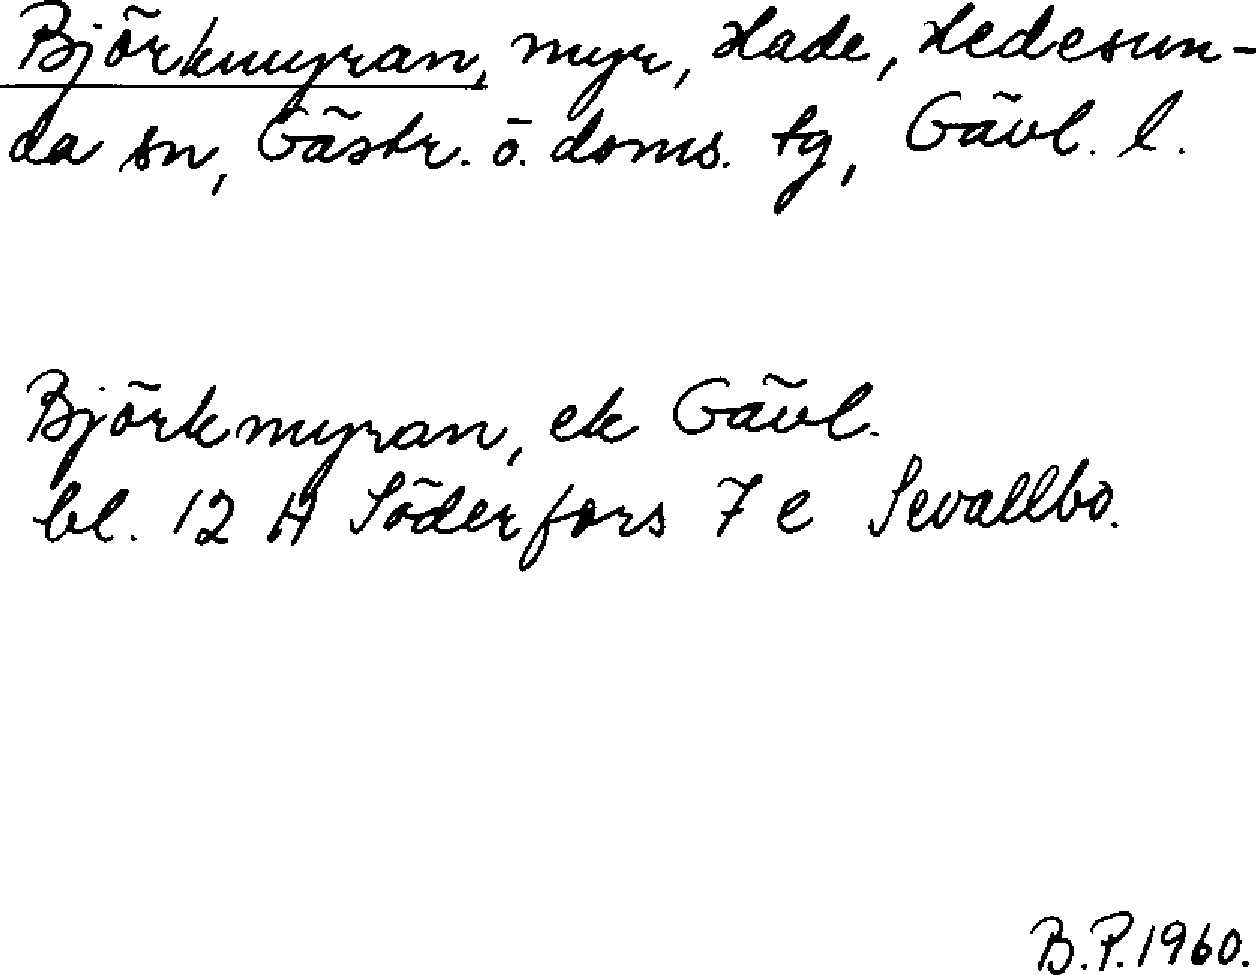 Björkmyran, myr, Hade, Hedesun-
da sn, Gästr. ö. doms. tg, Gävl. l.
Björkmyran, ek Gävl.
bl. 12 H Söderfors 7 e Sevallbo.
B.P. 1960.